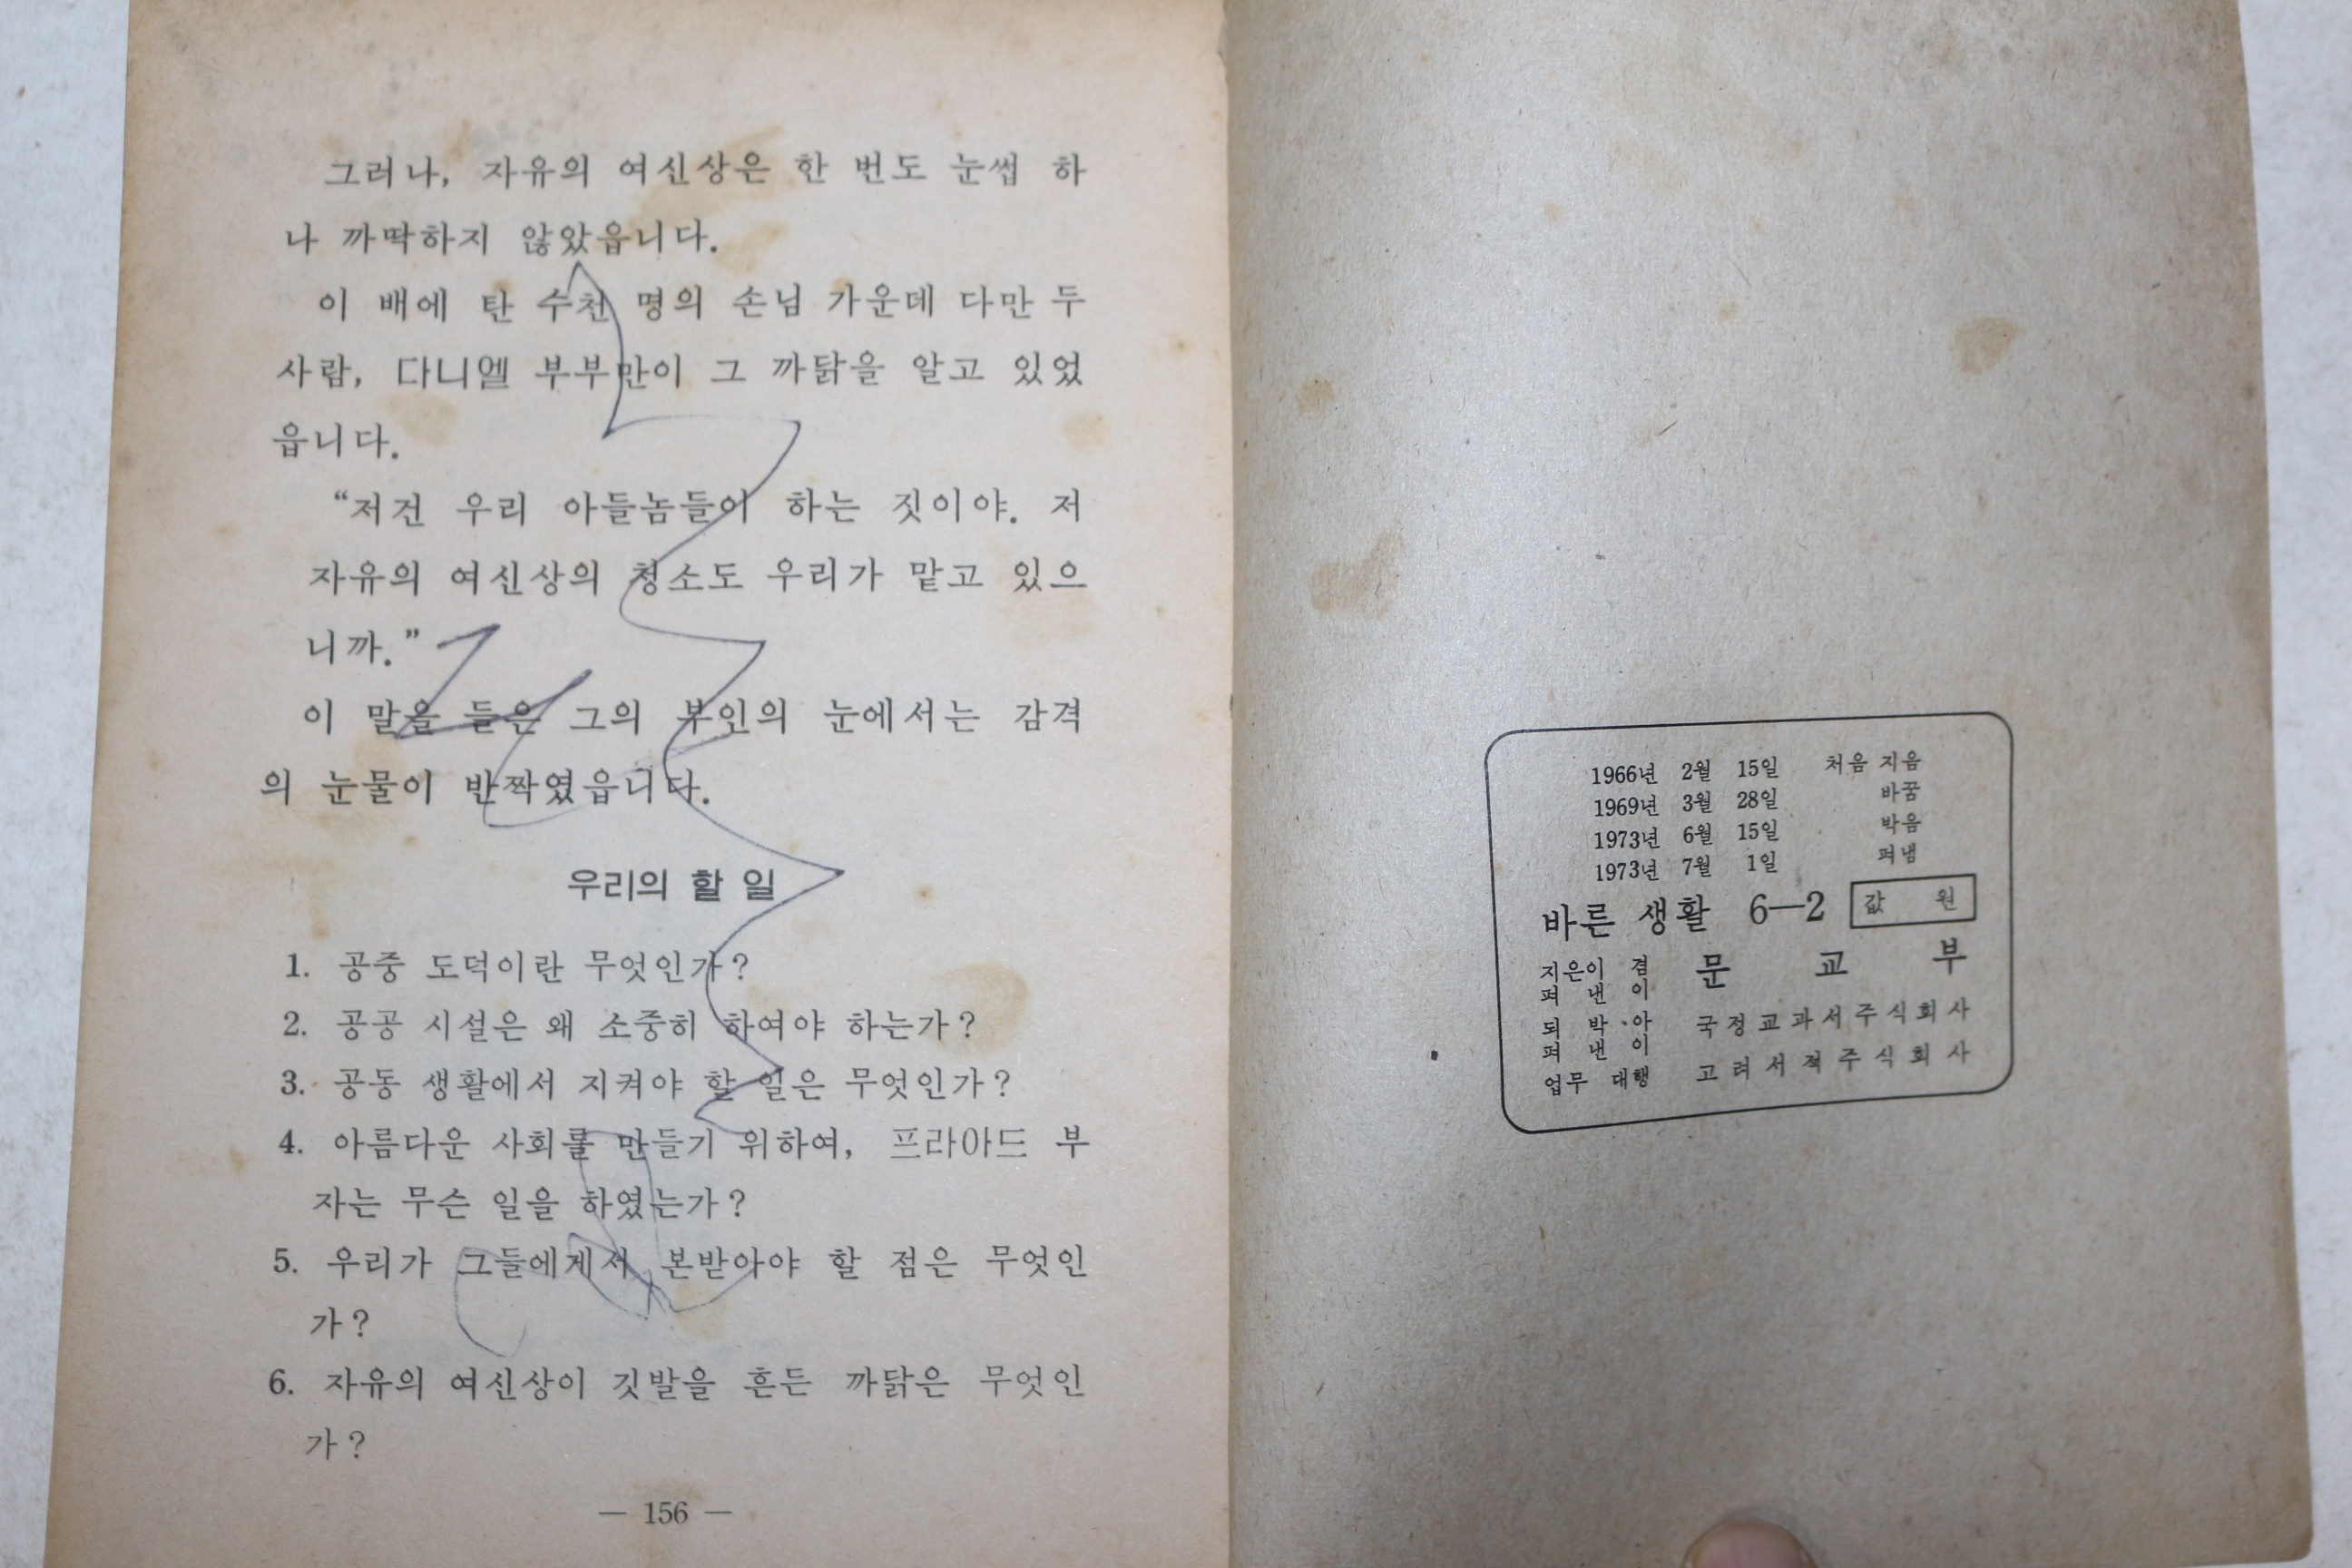 그러나, 자유의 여신상은 한 번도 눈썹 하
나 까딱하지 않았읍니다.
이 배에 탄 수천 명의 손님 가운데 다만 두
사람, 다니엘 부부만이 그 까닭을 알고 있었
읍니다.
“저건 우리 아들놈들이 하는 짓이야. 저
자유의 여신상의 청소도 우리가 맡고 있으
니까.”
이 말을 들은 그의 부인의 눈에서는 감격
의 눈물이 반짝였읍니다.
우리의 할 일
1. 공중 도덕이란 무엇인가?
2. 공공 시설은 왜 소중히 하여야 하는가?
3. 공동 생활에서 지켜야 할 일은 무엇인가?
4. 아름다운 사회를 만들기 위하여, 프라아드 부
자는 무슨 일을 하였는가?
5. 우리가 그들에게서 본받아야 할 점은 무엇인
가?
6. 자유의 여신상이 깃발을 흔든 까닭은 무엇인
가?
— 156 —
1966년 2월 15일 처음 지음
1969년 3월 28일 바꿈
1973년 6월 15일 박음
1973년 7월 1일 펴냄
바른 생활 6—2 값 원
지은이 겸
펴 낸 이
문 교 부
되 박 아
펴 낸 이
국정교과서주식회사
업무 대행 고려서적주식회사